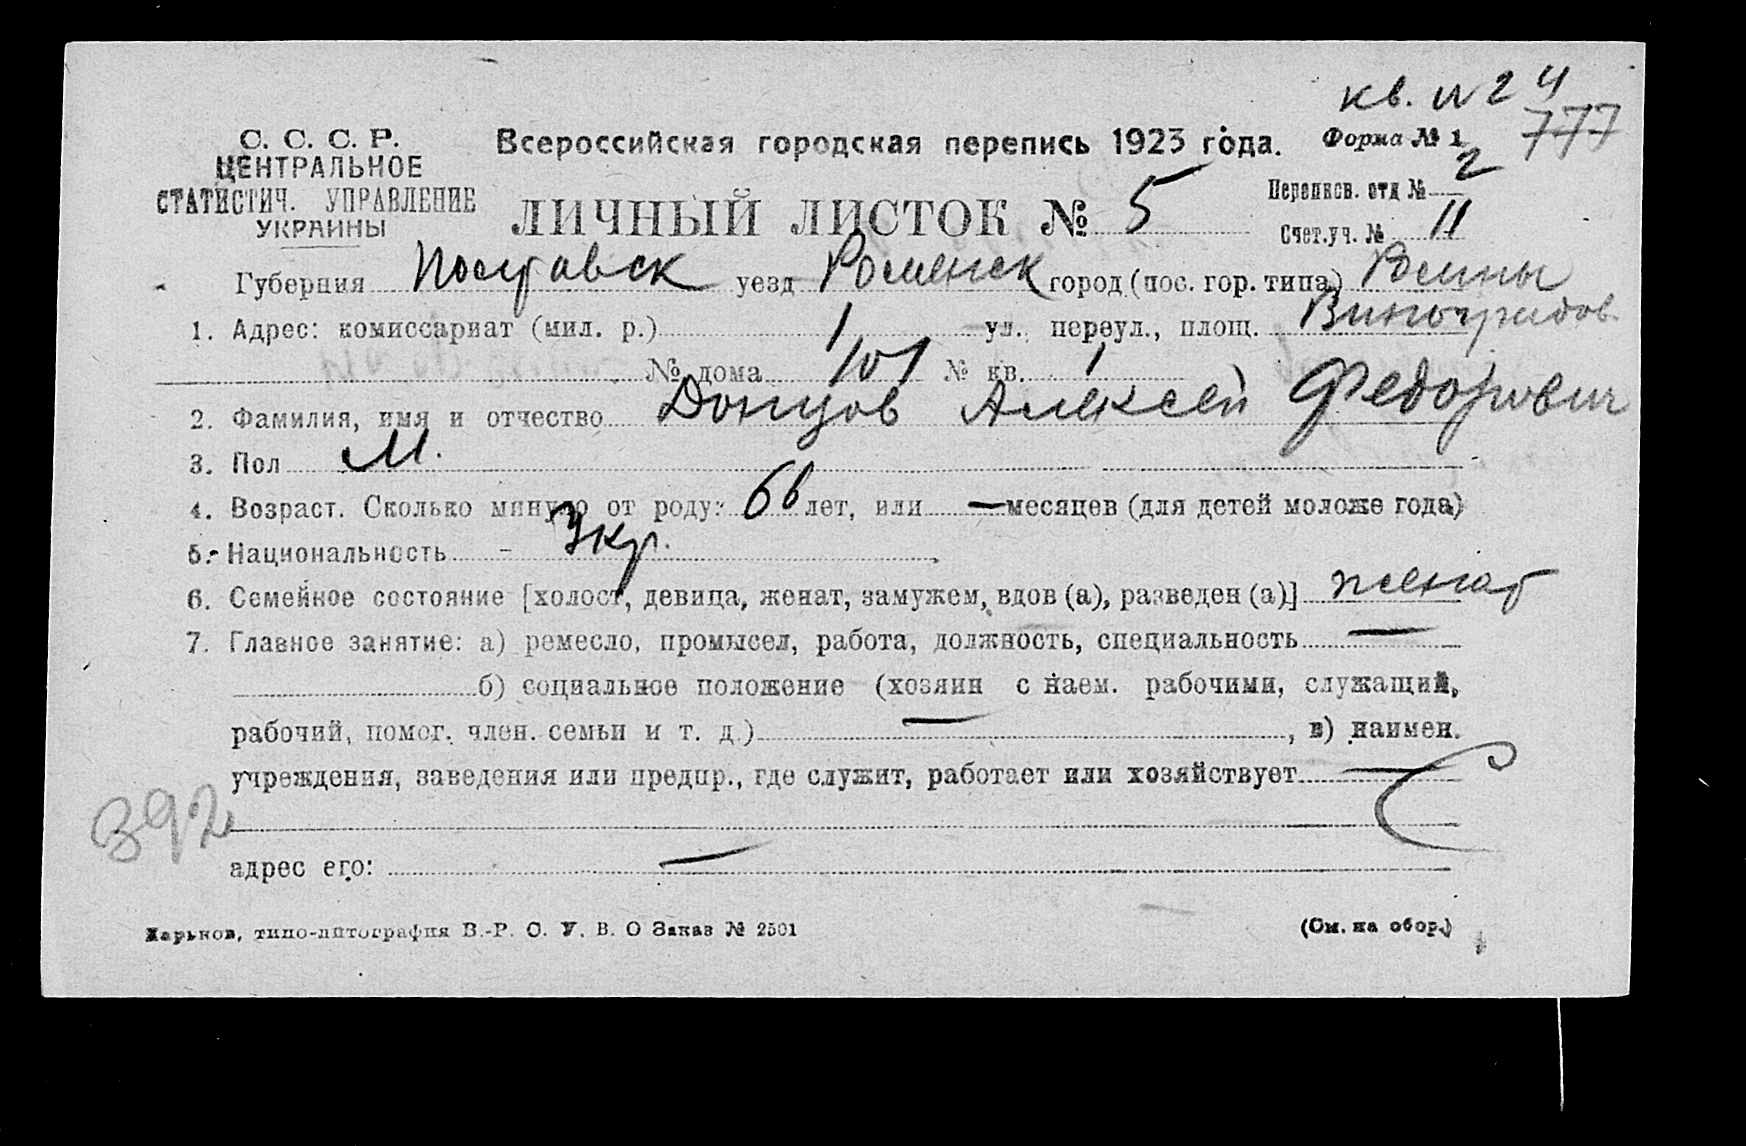 кв. № 24
777
С. С. С. Р.
ЦЕНТРАЛЬНОЕ
СТАТИСТИЧ. УПРАВЛЕНИЕ
УКРАИНЫ
Всероссийская городская перепись 1923 года. Форма № 1
ЛИЧНЫЙ ЛИСТОК № 5
Переписн. отд № 2
Счет.уч. № 11
Губерния Полтавск уезд Роменск город (пос. гор. типа) Ромны
1. Адрес: комиссариат (мил. р.) 1 ул., переул., площ. Виноградов
№ дома 101 № кв. 1
2. Фамилия, имя и отчество Донцов Алексей Федорович
3. Пол М.
4. Возраст. Сколько минуло от роду: 66 лет, или — месяцев (для детей моложе года)
5. Национальность - Укр.
6. Семейное состояние [холост, девица, женат, замужем, вдов (а), разведен (а)] женат
7. Главное занятие: а) ремесло, промысел, работа, должность, специальность —
б) социальное положение (хозяин с наем. рабочими, служащий,
рабочий, помог. член. семьи и т. д.) — , в) наимен.
учреждения, заведения или предпр., где служит, работает или хозяйствует —
392
адрес его: —
Харьков, типо-литография В.-Р. С. У. В. О Заказ № 2501 (См. на обор.)